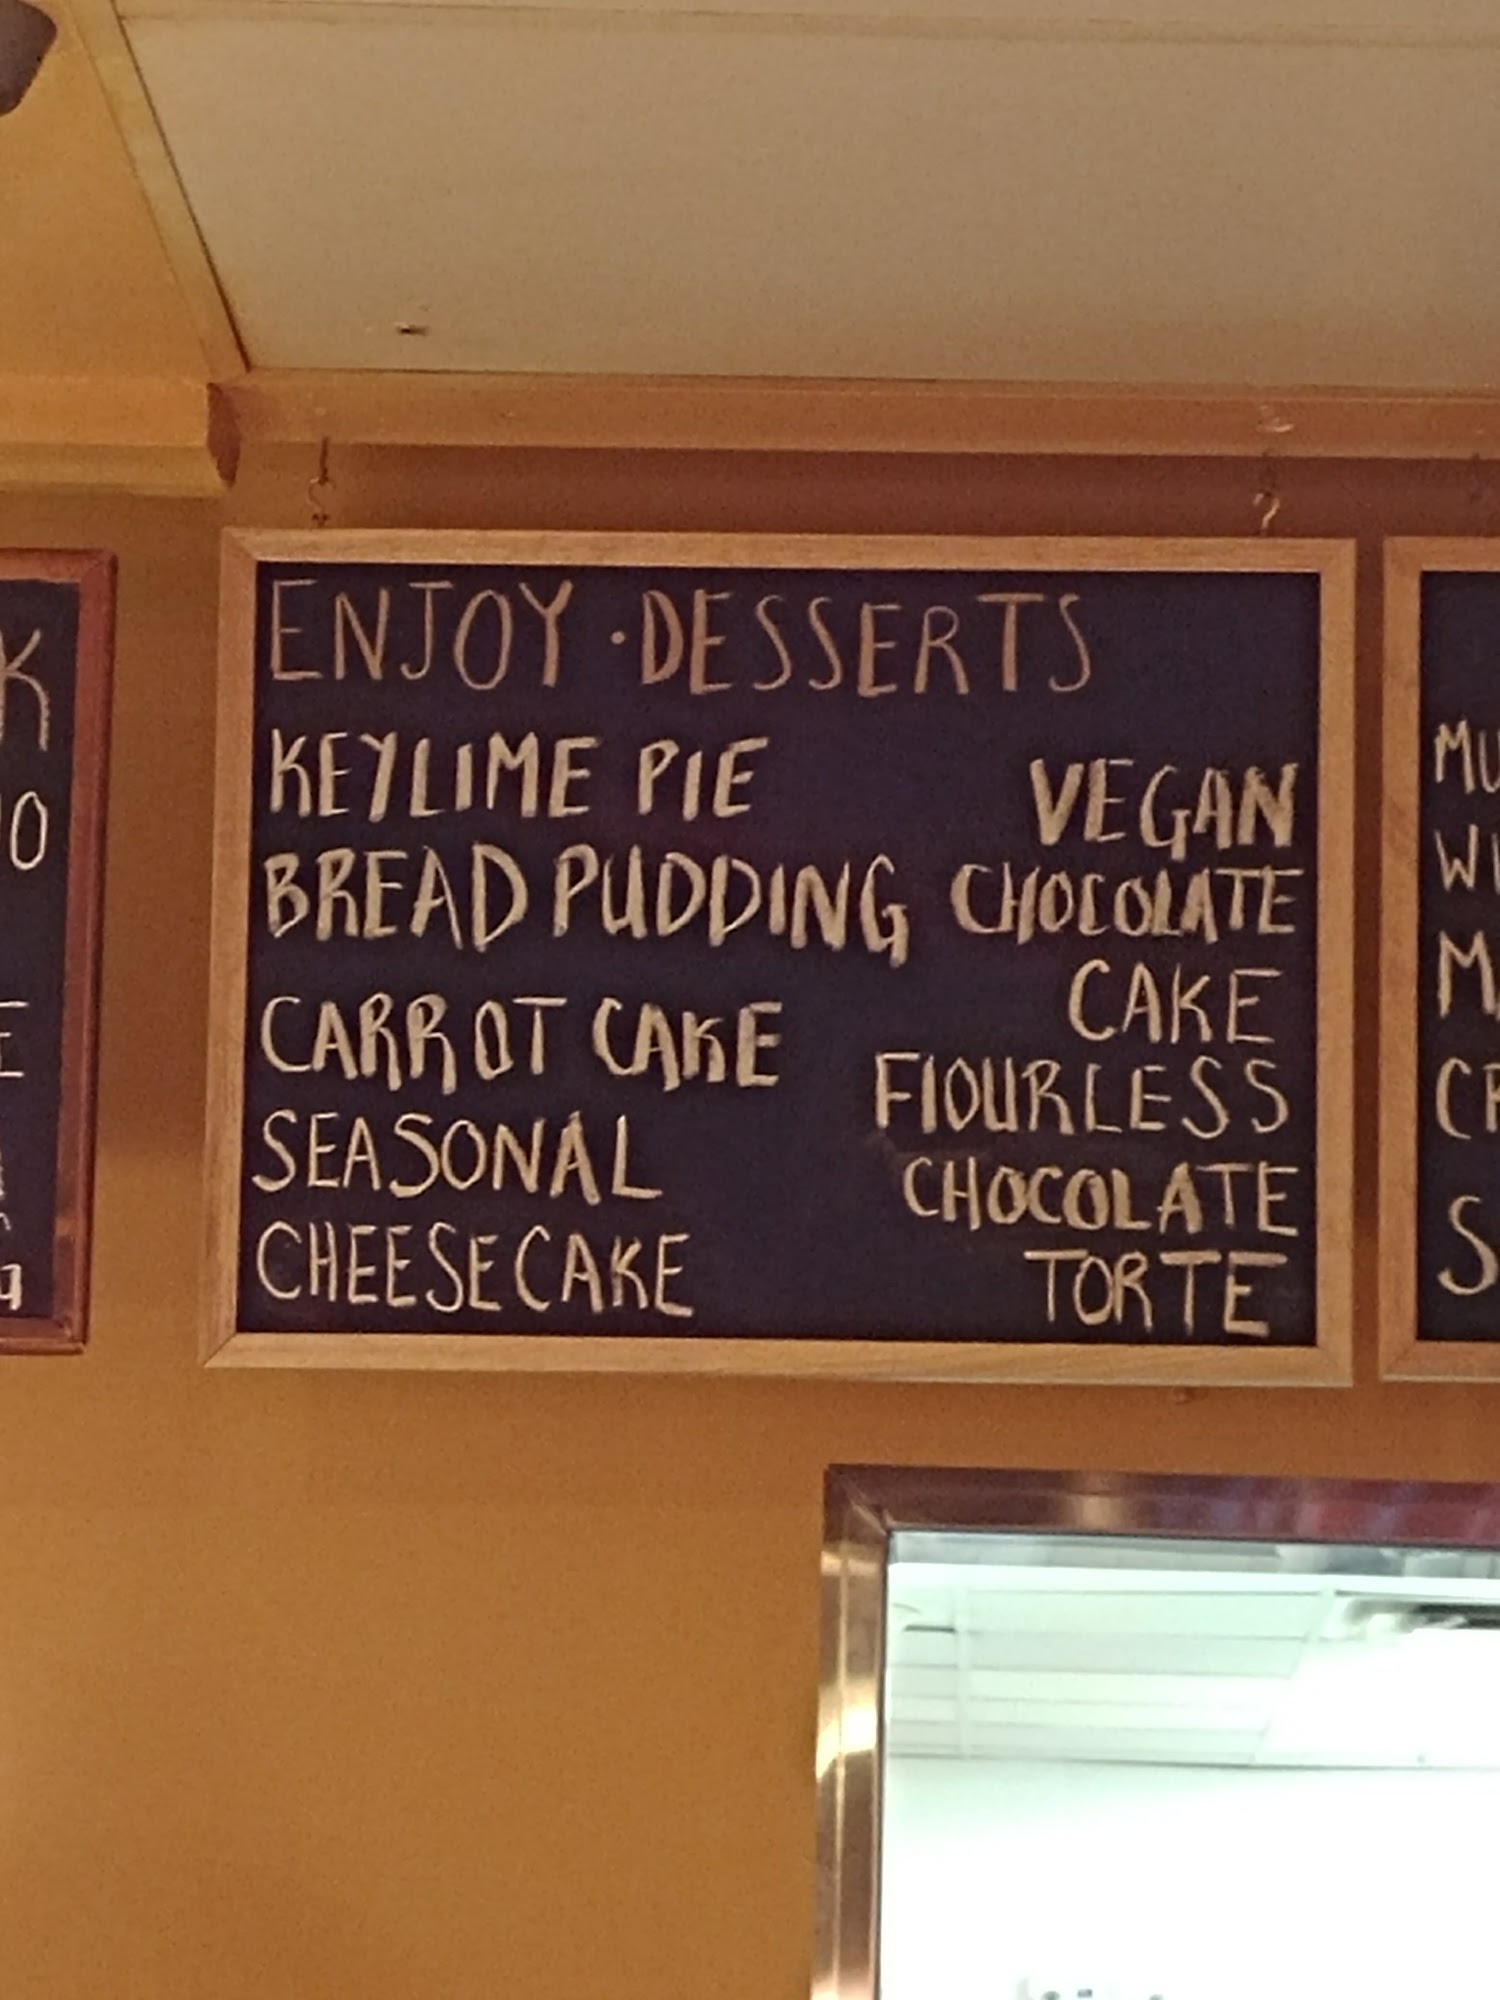 ENJOY · DESSERTS
KEYLIME PIE
BREAD PUDDING
CARROT CAKE
SEASONAL
CHEESECAKE
VEGAN
CHOCOLATE
CAKE
FlOURLESS
CHOCOLATE
TORTE